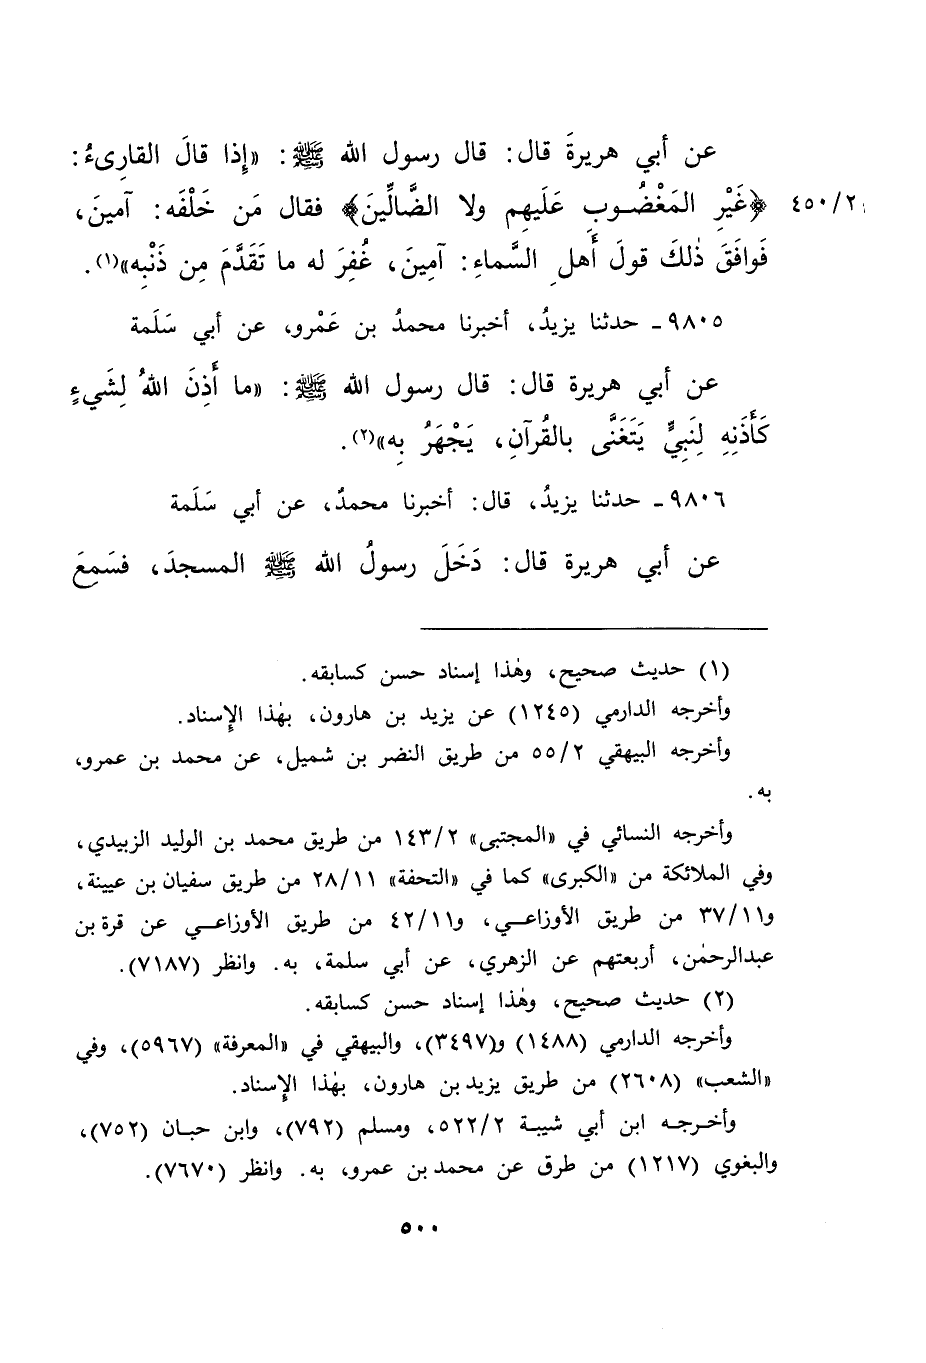 عن أبي هريرةَ قال: قال رسول الله ﷺ: «إِذا قالَ القارِىءُ:
٤٥٠/٢ ﴿غَيْرِ المَغْضُوبِ عَلَيهِم ولا الضَّالِّينَ﴾ فقال مَن خَلْفَه: آمينَ،
فَوافَقَ ذٰلكَ قولَ أَهلِ السَّماءِ: آمِينَ، غُفِرَ له ما تَقَدَّمَ مِن ذَنْبِه»(١).
٩٨٠٥ـ حدثنا يزيدُ، أخبرنا محمدُ بن عَمْرو، عن أبي سَلَمة
عن أبي هريرة قال: قال رسول الله ﷺ: «ما أَذِنَ اللهُ لِشَيءٍ
كَأَذَنِهِ لِنَبِيٍّ يَتَغَنَّى بالقُرآنِ، يَجْهَرُ بِه»(٢).
٩٨٠٦ـ حدثنا يزيدُ، قال: أخبرنا محمدٌ، عن أبي سَلَمة
عن أبي هريرة قال: دَخَلَ رسولُ الله ﷺ المسجدَ، فسَمِعَ
(١) حديث صحيح، وهٰذا إسناد حسن كسابقه.
وأخرجه الدارمي (١٢٤٥) عن يزيد بن هارون، بهٰذا الإِسناد.
وأخرجه البيهقي ٥٥/٢ من طريق النضر بن شميل، عن محمد بن عمرو،
به.
وأخرجه النسائي في «المجتبى» ١٤٣/٢ من طريق محمد بن الوليد الزبيدي،
وفي الملائكة من «الكبرى» كما في «التحفة» ٢٨/١١ من طريق سفيان بن عيينة،
و٣٧/١١ من طريق الأوزاعي، و٤٢/١١ من طريق الأوزاعي عن قرة بن
عبدالرحمٰن، أربعتهم عن الزهري، عن أبي سلمة، به. وانظر (٧١٨٧).
(٢) حديث صحيح، وهٰذا إسناد حسن كسابقه.
وأخرجه الدارمي (١٤٨٨) و(٣٤٩٧)، والبيهقي في «المعرفة» (٥٩٦٧)، وفي
«الشعب» (٢٦٠٨) من طريق يزيد بن هارون، بهٰذا الإِسناد.
وأخرجه ابن أبي شيبة ٥٢٢/٢، ومسلم (٧٩٢)، وابن حبان (٧٥٢)،
والبغوي (١٢١٧) من طرق عن محمد بن عمرو، به. وانظر (٧٦٧٠).
٥٠٠